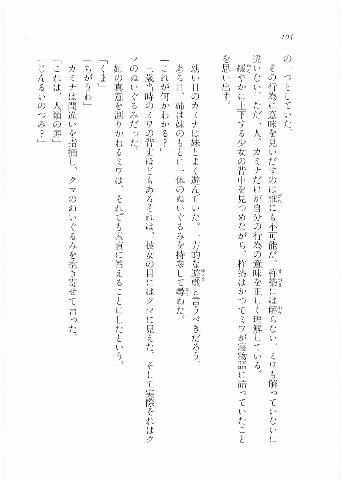 104
の一つとしていた。
その行為に意味を見いだすのは誰にも不可能だ。杵築には解らない、ミワも解っていないに
違いない。ただ一人、カミナだけが自分の行為の意味を正しく理解している。
緩やかに上下する少女の背中を見つめながら、杵築はかつてミワが寝物語に語っていたこと
を思い出す。
幼い日のカミナは妹とよく遊んでいた。一方的な遊戯と言うべきだろう。
ある日、姉は妹のもとに一体のぬいぐるみを持参して尋ねた。
「これが何かわかる？」
三歳当時のミワの背丈ほどもあるそれは、彼女の目にはクマに見えた。そして実際それはク
マのぬいぐるみだった。
姉の真意を測りかねるミワは、それでも素直に答えることにしたという。
「くま」
「ちがうわ」
カミナは間違いを指摘し、クマのぬいぐるみを抱き寄せて言った。
「これは、人類の罪」
「じんるいのつみ？」